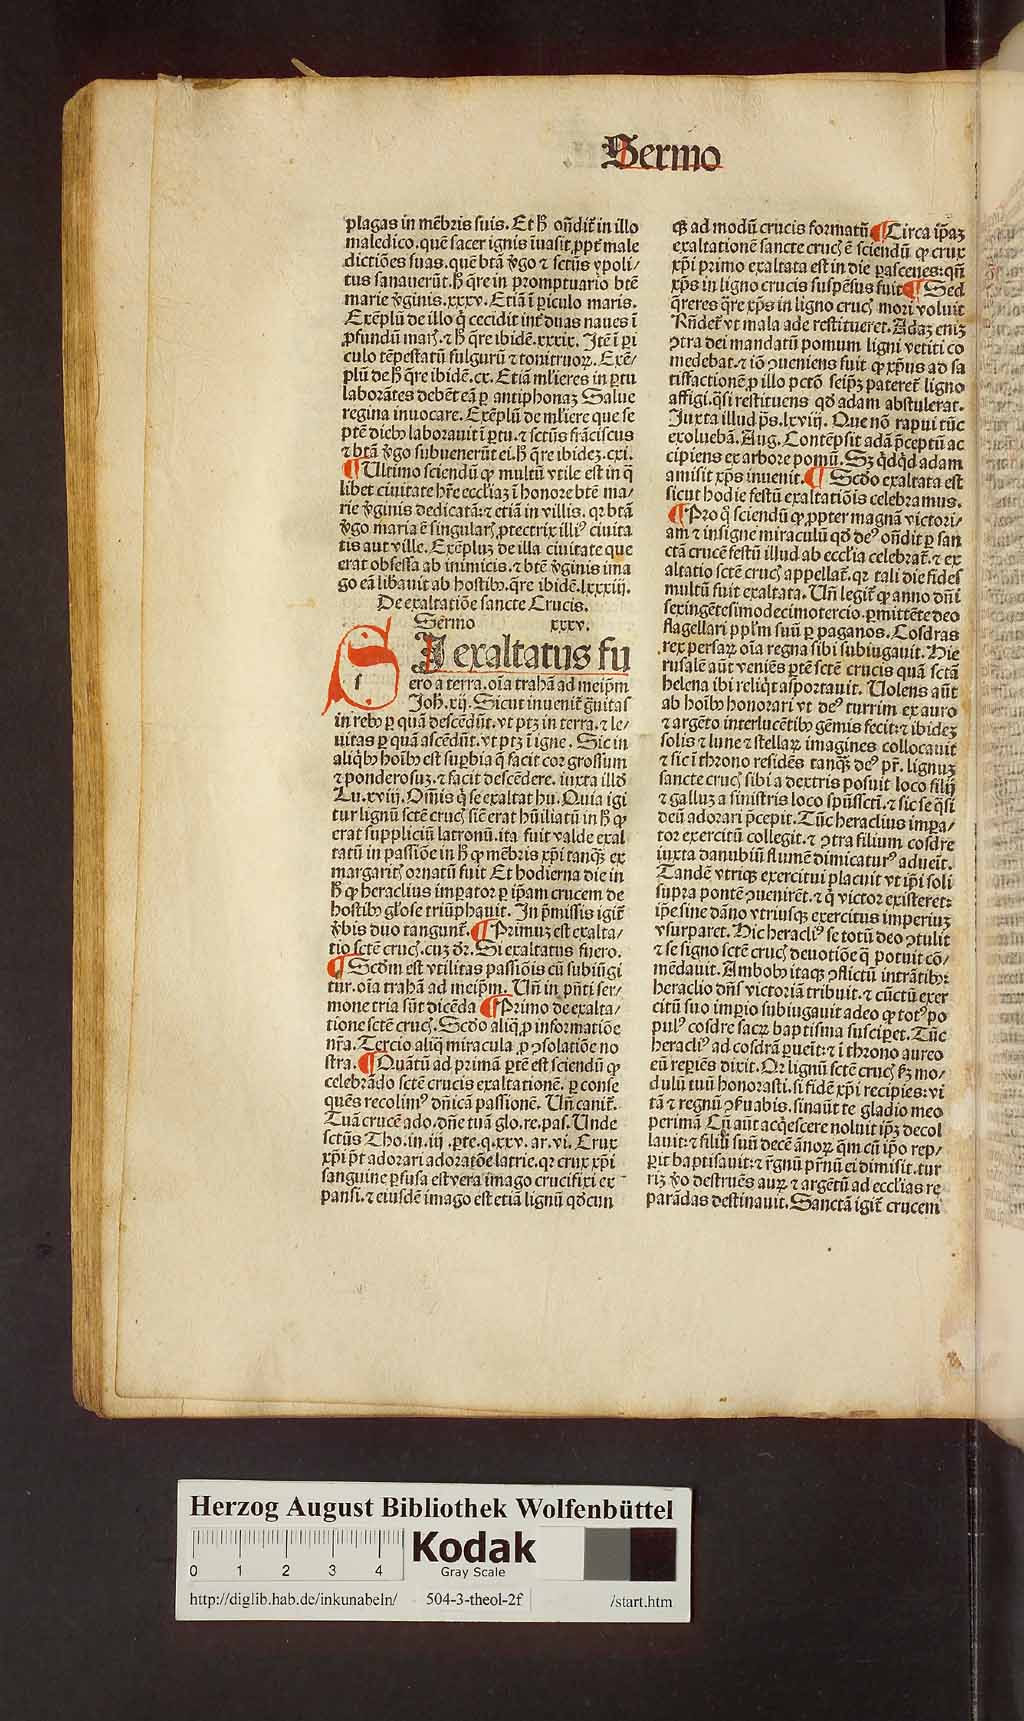 Sermo
plagas in mēbris suis. Et ħ oñdit̃ in illo
maledico. quē sacer ignis īuasit ꝓpt̃ male
dictiōes suas. quē btā v̓go ⁊ sctūs ypoli/
tus sanauerūt. ħ q̄re in promptuario btē
marie v̓ginis. xxxv. Etiā ī ꝑiculo maris.
Exēplū de illo q̇ cecidit int̓ duas naues ī
ꝓfundū marꝭ. ⁊ ħ q̄re ibidē. xxxix. Itē ī ꝑi
culo tēpestatū fulgurū ⁊ tonitruoꝝ. Exē/
plū de ħ q̄re ibidē. cx. Etiā ml̓ieres in ꝑtu
laborātes debēt eā ꝑ antiphonaꝫ Salue
regina inuocare. Exēplū de ml̓iere que se
ptē dieb⁹ laborauit ī ꝑtu. ⁊ sctūs frāciscus
⁊ btā v̓go subuenerūt ei. ħ q̄re ibideꝫ. cxi.
¶ Ultimo sciendū ꝙ multū vtile est in q̄
libet ciuitate hr̄e eccl̓iaꝫ ī honore btē ma/
rie v̓ginis dedicatā: ⁊ etiā in villis. qꝛ btā
v̓go maria ē singularꝭ ꝓtectrix illi⁹ ciuita
tis aut ville. Exēpluꝫ de illa ciuitate que
erat obsessa ab inimicis. ⁊ btē v̓ginis ima
go eā libauit ab hostib⁹. q̄re ibidē. lxxxiij.
De exaltatiōe sancte Crucis.
Sermo xxxv.
SI exaltatus fu
ero a terra. oīa trahā ad meip̄m
Joħ. xij. Sicut inuenit̃ g̃uitas
in reb⁹ ꝑ quā descēdūt. vt ptꝫ in terra. ⁊ le/
uitas ꝑ quā ascēdūt. vt ptꝫ ī igne. Sic in
aliq̇b⁹ hoīb⁹ est suꝑbia q̄ facit cor grossum
⁊ ponderosuꝫ. ⁊ facit descēdere. iuxta illḋ
Lu. xviij. Om̄is q̇ se exaltat hu. Quia igi
tur lignū sctē crucꝭ siē erat hūiliatū in ħ ꝙ
erat suppliciū latronū. ita fuit valde exal
tatū in passiōe in ħ ꝙ mēbris xp̄i tanqꝫ ex
margaritꝭ ornatū fuit Et hodierna die in
ħ ꝙ heraclius imꝑator ꝑ ip̄am crucem de
hostib⁹ gl̓ose triūphauit. In p̄missis igit̃
v̓bis duo tangunt̃. ¶ Primuꝫ est exalta/
tio sctē crucꝭ. cuꝫ dr̄. Si exaltatus fuero.
¶ Scd̄m est vtilitas passiōis cū subiūgi
tur. oīa trahā ad meip̄m. Uñ in p̄nti ser/
mone tria sūt dicēda ¶ Primo de exalta/
tione sctē crucꝭ. Scdo aliq̄ ꝓ informatiōe
nr̄a. Tercio aliq̄ miracula ꝓ ꝯsolatiōe no
stra. ¶ Quātū ad primā ꝑtē est sciendū ꝙ
celebrādo sctē crucis exaltationē. ꝑ conse
quēs recolim⁹ dñicā passionē. Uñ canit̃.
Tuā crucē ado. dñe tuā glo. re. pas. Unde
sctūs Tho. in. iij. ꝑte. q. xxv. ar. vi. Crux
xp̄i p̄t adorari adoratōe latrie. qꝛ crux xp̄i
sanguine ꝑfusa est vera imago crucifixi ex
pansi. ⁊ eiusdē imago est etiā lignū qḋcun
qꝫ ad modū crucis formatū ¶ Circa ip̄aꝫ
exaltationē sancte crucꝭ ē sciendū ꝙ crux
xp̄i primo exaltata est in die ꝑasceues: qñ
xp̄s in ligno crucis suspēsus fuit ¶ Sed
q̄reres q̄re xp̄s in ligno crucꝭ mori voluit
Rñdet̃ vt mala ade restitueret. Adaꝫ eniꝫ
ꝯtra dei mandatū pomum ligni vetiti co
medebat. ⁊ iō ꝯueniens fuit ꝙ xp̄us ad sa
tisfactionē ꝓ illo pctō seip̄ꝫ pateret̃ ligno
affigi. q̄si restituens qḋ adam abstulerat.
Juxta illud ps. lxviij. Que nō rapui tūc
exoluebā. Aug. Contēpsit adā p̄ceptū ac
cipiens ex arbore pomū. Sꝫ q̇dq̇d adam
amisit xp̄s inuenit. ¶ Scdo exaltata est
sicut hodie festū exaltatiōis celebramus.
¶ Pro q̄ sciendū ꝙ ꝓpter magnā victori/
am ⁊ insigne miraculū qḋ de⁹ oñdit ꝑ san
ctā crucē festū illud ab eccl̓ia celebrat̃. ⁊ ex
altatio sctē crucꝭ appellat̃. qꝛ tali die fides
multū fuit exaltata. Uñ legit̃ ꝙ anno dñi
sexingētesimodecimotercio. ꝑmittēte deo
flagellari ppl̓m suū ꝑ paganos. Cosdras
rex persaꝝ oīa regna sibi subiugauit. Hie
rusalē aūt veniēs ꝑtē sctē crucis quā sctā
helena ibi reliq̇t asportauit. Uolens aūt
ab hoīb⁹ honorari vt de⁹ turrim ex auro
⁊ argēto interlucētib⁹ gēmis fecit: ⁊ ibideꝫ
solis ⁊ lune ⁊ stellaꝝ imagines collocauit
⁊ sic ī throno residēs tanqꝫ de⁹ pr̄. lignuꝫ
sancte crucꝭ sibi a dextris posuit loco filij
⁊ galluꝫ a sinistris loco spūsscti. ⁊ sic se q̄si
deū adorari p̄cepit. Tūc heraclius impa/
tor exercitū collegit. ⁊ ꝯtra filium cosdre
iuxta danubiū flumē dimicatur⁹ aduēit.
Tandē vtriqꝫ exercitui placuit vt ip̄i soli
supra pontē ꝯuenirēt. ⁊ q̇ victor existeret:
ip̄e sine dāno vtriusqꝫ exercitus imperiuꝫ
vsurparet. Hic heracli⁹ se totū deo ꝯtulit
⁊ se signo sctē crucꝭ deuotiōe q̄ potuit cō/
mēdauit. Ambob⁹ itaqꝫ ꝯflictū intrātib⁹:
heraclio dñs victoriā tribuit. ⁊ cūctū exer
citū suo imꝑio subiugauit adeo ꝙ tot⁹ po
pul⁹ cosdre sacꝝ baptisma susciꝑet. Tūc
heracli⁹ ad cosdrā ꝑuēit: ⁊ ī throno aureo
eū reꝑiēs dixit. Qꝛ lignū sctē crucꝭ ẜꝫ mo/
dulū tuū honorasti. si fidē xp̄i recipies: vi
tā ⁊ regnū ꝯẜuabis. sinaūt te gladio meo
perimā Cū aūt acq̇escere noluit ip̄ꝫ decol
lauit: ⁊ filiū suū decē ānoꝝ q̄m cū ip̄o rep/
ꝑit baptisauit: ⁊ r̄gnū pr̄nū ei dimisit. tur
riꝫ v̓o destruēs auꝝ ⁊ argētū ad eccl̓ias re
parādas destinauit. Sanctā igit̃ crucem
Herzog August Bibliothek Wolfenbüttel
0 1 2 3 4
Kodak
Gray Scale
http://diglib.hab.de/inkunabeln/ 504-3-theol-2f /start.htm